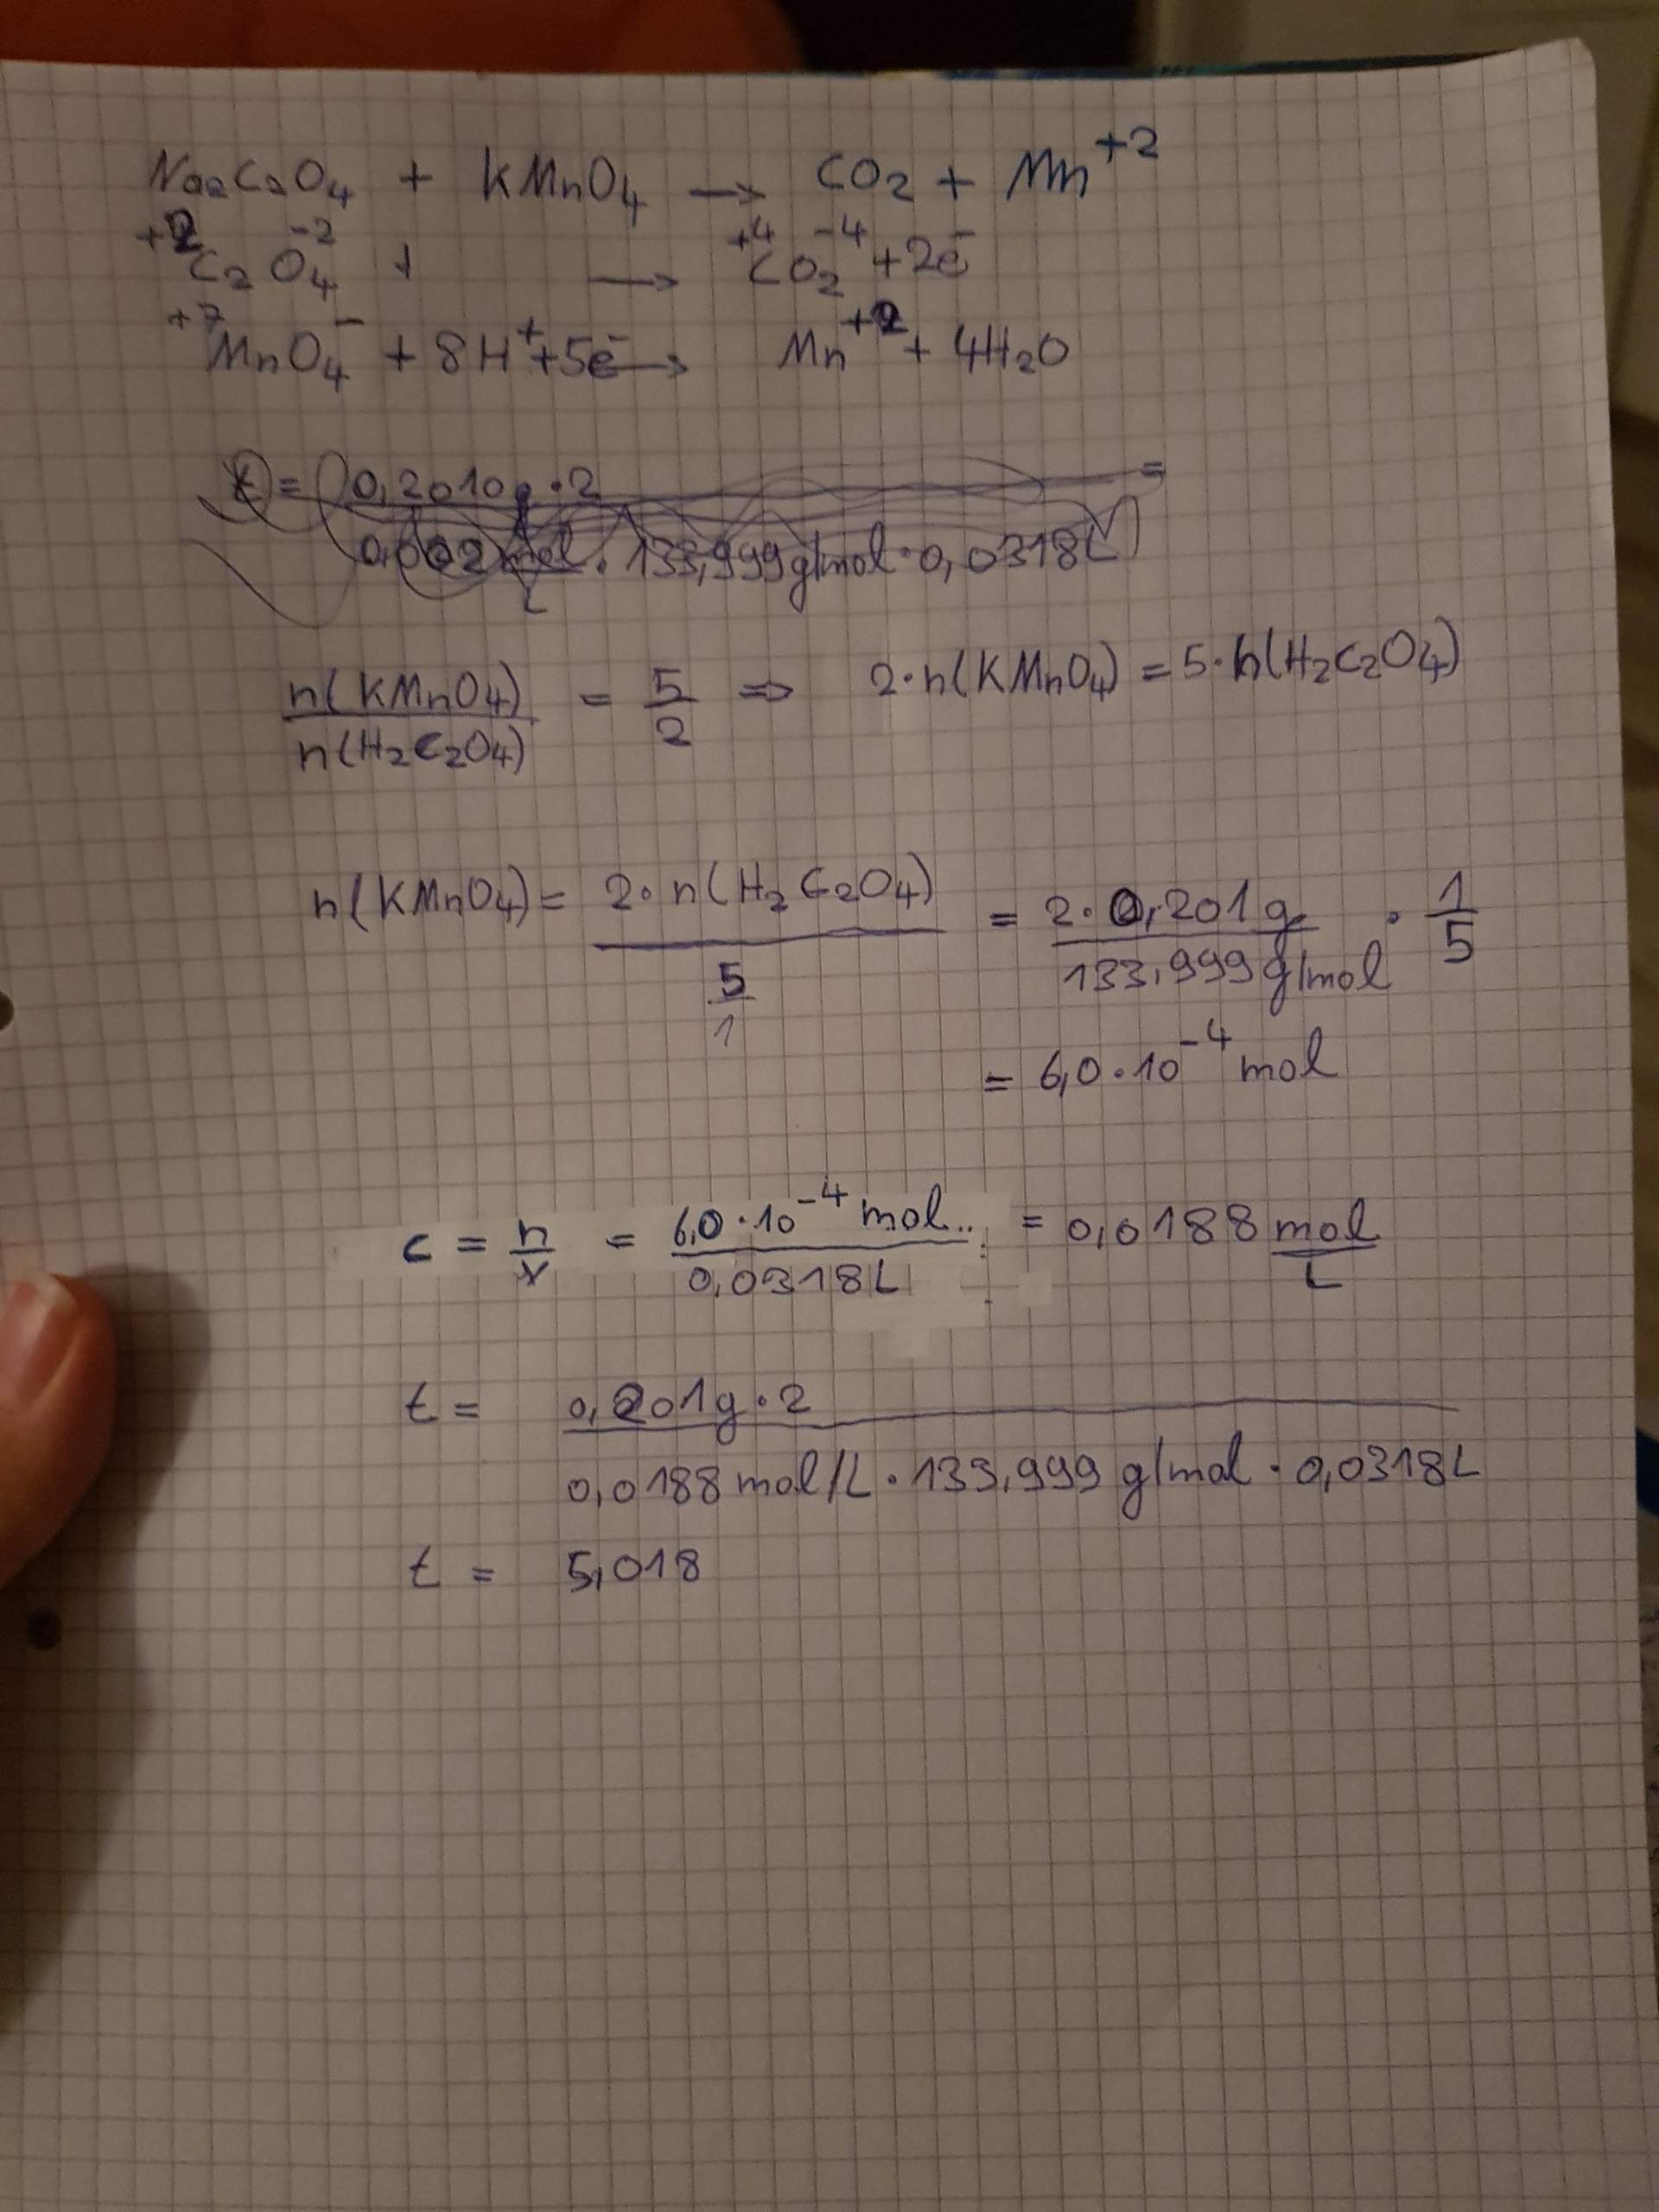 Na₂C₂O₄ + KMnO₄ → CO₂ + Mn⁺²
+2 -2 +4 -4
C₂O₄ + → CO₂ + 2e⁻
+7
MnO₄⁻ + 8H⁺ + 5e⁻ → Mn⁺² + 4H₂O
t = 0,2010g · 2 =
0,002 mol/L · 133,999 g/mol · 0,0318L
n(KMnO₄)/n(H₂C₂O₄) = 5/2 ⇒ 2·n(KMnO₄) = 5·n(H₂C₂O₄)
n(KMnO₄) = 2·n(H₂C₂O₄) / (5/1) = 2·0,201g / 133,999 g/mol · 1/5
= 6,0·10⁻⁴ mol
c = n/V = 6,0·10⁻⁴ mol / 0,0318L = 0,0188 mol/L
t = 0,201g · 2
0,0188 mol/L · 133,999 g/mol · 0,0318L
t = 5,018